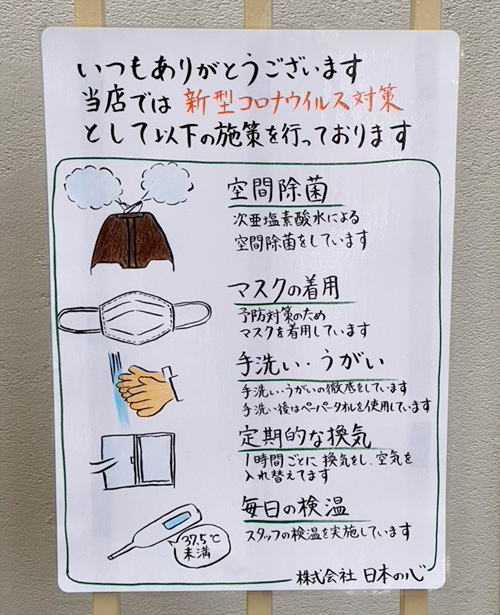 いつもありがとうございます
当店では 新型コロナウイルス対策
として以下の施策を行っております
空間除菌
次亜塩素酸水による
空間除菌をしています
マスクの着用
予防対策のため
マスクを着用しています
手洗い・うがい
手洗い・うがいの徹底をしています
手洗い後はペーパータオルを使用しています
定期的な換気
1時間ごとに換気をし、空気を
入れ替えてます
毎日の検温
スタッフの検温を実施しています
37.5℃
未満
株式会社 日本の心